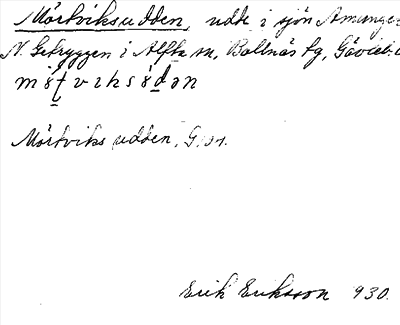 Mörtviksudden, udde i sjön Amungen
N. Getryggen i Alfta sn, Bollnäs tg, Gävleb.
mö̀ʈvɪksùdən
Mörtviks udden,
Erik Eriksson 930.